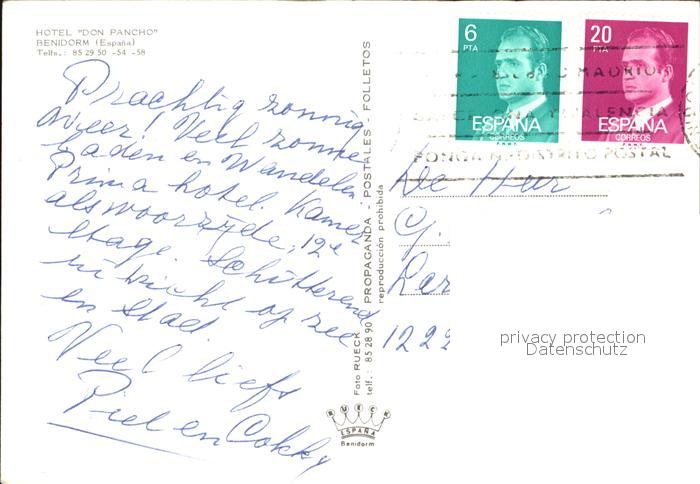 HOTEL "DON PANCHO"
BENIDORM (España)
Telfs.: 85 29 50 -54 -58
Prachtig zonnig
weer! Veel zonne
baden en Wandelen.
Prima hotel. Kamer
als voorzijde, 12e
etage. Schitterend
uitzicht op zee
en stad.
Veel liefs
Piet en Cokky
Foto RUECK PROPAGANDA - POSTALES - FOLLETOS
telf.: 85 28 90 reproducción prohibida
RUECK
ESPAÑA
Benidorm
6
PTA
ESPAÑA
CORREOS
F.N.M.T.
20
PTA
ESPAÑA
CORREOS
F.N.M.T.
MADRID
VALENCIA
PONGA DISTRITO POSTAL
De Heer
1222
privacy protection
Datenschutz